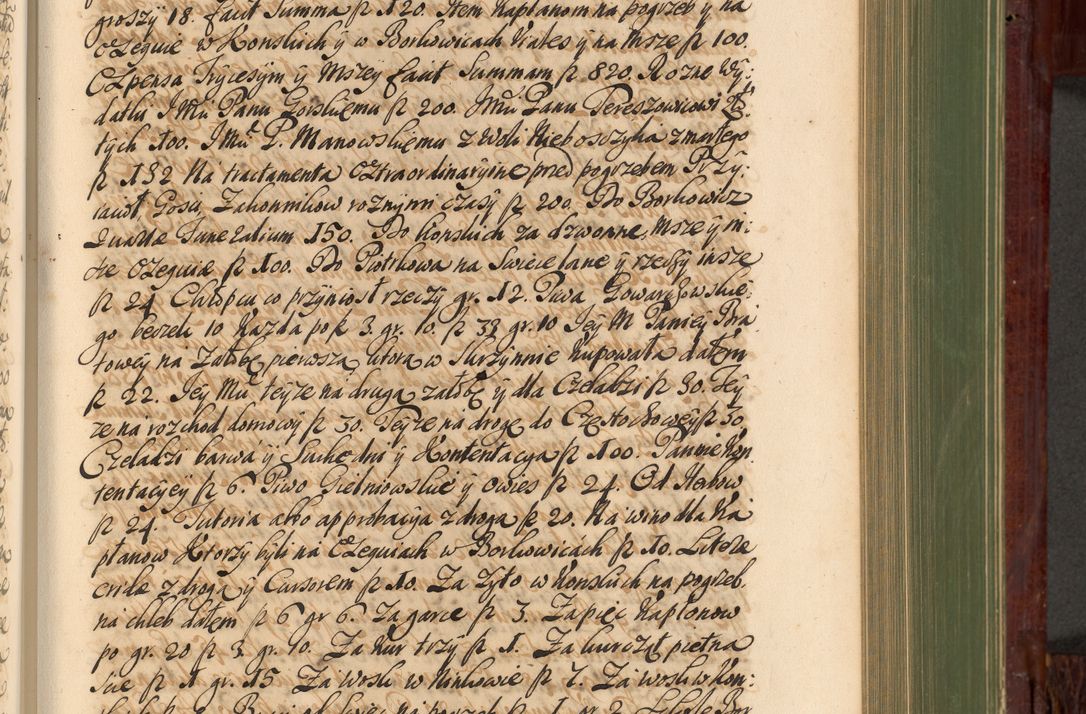 groszy 18. facit Summa fl 120. Item Kapłanom na pogrzeb y na
Exequie w Konskich y w Borkowicach Viales y na Msze fl 100.
Expensa Trycesym y Mszey facit Summam fl 820. Rozne Wy:
datki JMci Panu Gorskiemu fl 200. JMci Panu Tereszowiczowi
tych 100. JMci P. Manowskiemu z Woli Nieboszczyka zmarłego
fl 132 Na tractamenta Extraordinaryine przed pogrzebem Przy:
iazdt Gosci Zakonnikow roznymi czasy fl 200. Do Borkowicz
Quarta Funeralium 150. Do Konskich za dzwonne, Msze y in:
sze Exequie fl 100. Do Piotrkowa na Swiece lane y rzeczy insze
fl 24 Chłopcu co przyniosł rzeczy gr. 12. Piwa Gowarzowskie:
go beczek 10 Kazda po fl 3. gr. 10. fl 33 gr. 10 Jey M Paniey Pora
towey na Załobę pierwszą, ktora w Skrzynnie Kupowała dałem
fl 22. Jey Mci teyze na drugą załobę y dla Czeladzi fl 30. Tey
ze na rozchod domowy fl 30. Teyze na drogę do Częstochowey fl 30
Czeladzi barwa y Suchedni y Kontentacya fl 100. Pannie Kon
tentacyey fl 6. Piwo Gielniowskie y owies fl 24. Od Herbow
fl 24 Tutoria albo approbacya z drogą fl 20. Na wino dla Ka
płanow Ktorzy byli na Exequiach w Borkowicach fl 10. Litere
cride z drogą y Cursorem fl 10. Za Zyto w Konskich na pogrzeb
na chleb dałem fl 6 gr 6. Za garce fl 3. Za piec Kapłonow
po gr. 20 fl 3 gr. 10. Za Kur trzy fl 1. Za kurcząt pietna
scie fl 1 gr. 15 Za wosk w Ninkowie fl 7. Za wosk w Kon: